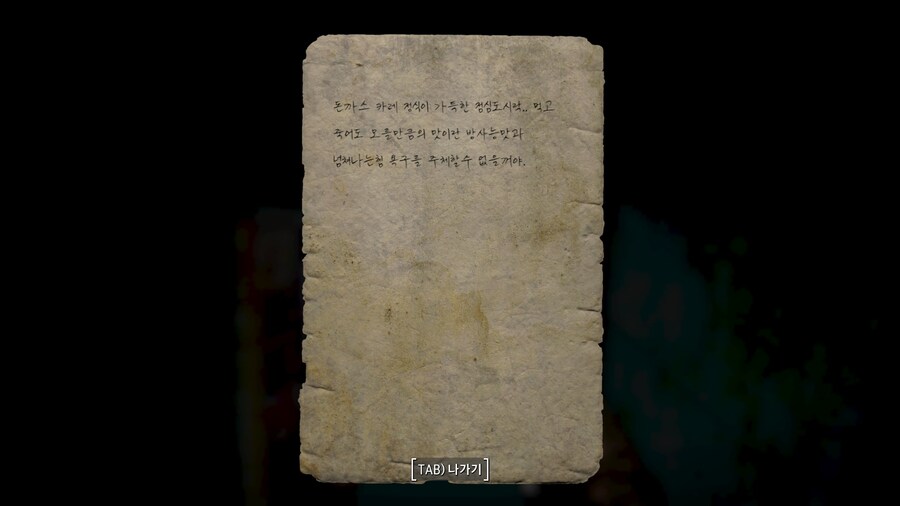 돈까스 카레 정식이 가득한 점심도시락.. 먹고
죽어도 모를만큼의 맛이란 방사능맛과
넘쳐나는침 욕구를 주체할수 없을꺼야.
[TAB) 나가기]